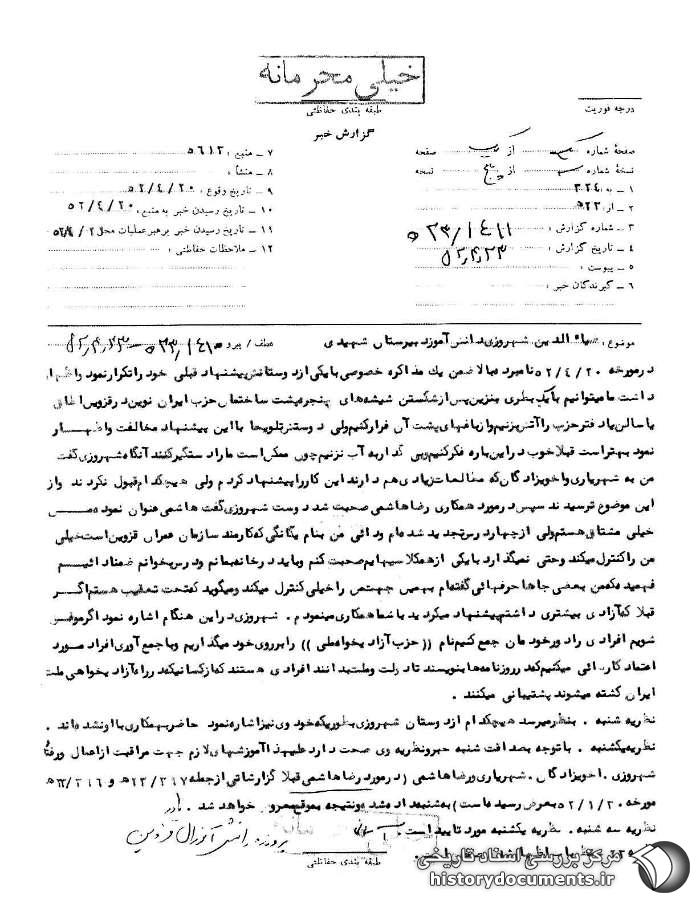 خیلی محرمانه
طبقه بندی حفاظتی
درجه فوریت
گزارش خبر
صفحهٔ شماره از صفحه
نسخهٔ شماره از پنج نسخه
۱ ـ به : ۳۲۴
۲ ـ از : ۵۲۲
۳ ـ شماره گزارش :
۴ ـ تاریخ گزارش : ۵۲٫۴٫۲۳
۵ ـ پیوست :
۶ ـ گیرندگان خبر :
۷ ـ منبع : ۵۶۱۲
۸ ـ منشأ :
۹ ـ تاریخ وقوع : ۵۲/۴/۲۰
۱۰ ـ تاریخ رسیدن خبر به منبع : ۵۲/۴/۲۰
۱۱ ـ تاریخ رسیدن خبر برهبر عملیات محل
۱۲ ـ ملاحظات حفاظتی :
موضوع : الدین شهروزی دانش آموز دبیرستان شهیدی عطف / پیرو
درمورخه ۵۲/۴/۲۰ نامبرده بالا ضمن یک مذاکره خصوصی با یکی از دوستانش پیشنهاد قبلی خود را تکرار نمود و اظهار
داشت ما میتوانیم با یک بطری بنزین پس از شکستن شیشه های پنجره پشت ساختمان حزب ایران نوین در قزوین اطاق
یا سالن یا دفتر حزب را آتش بزنیم و از باغهای پشت آن فرار کنیم ولی دوستش تلویحا با این پیشنهاد مخالفت و اظهار
نمود بهتر است قبلا خوب در این باره فکر کنیم و بی گدار به آب نزنیم چون ممکن است ما را دستگیر کنند آنگاه شهروزی گفت
من به شهریاری و اخویزادگان که مطالعات زیادی هم دارند این کار را پیشنهاد کردم ولی هیچکدام قبول نکردند و از
این موضوع ترسیدند سپس در مورد همکاری رضا هاشمی صحبت شد دوست شهروزی گفت هاشمی عنوان نموده من
خیلی مشتاق هستم ولی از چهار درس تجدید شده ام و دائی من بنام یگانگی که کارمند سازمان عمران قزوین است خیلی
من را کنترل میکند و حتی نمیگذارد با یکی از همکلاسیهایم صحبت کنم و باید در خانه بمانم و درس بخوانم ضمنا دائیم
فهمیده که من بعضی جاها حرفهائی گفته ام بهمین جهت من را خیلی کنترل میکند و میگوید که تحت تعقیب هستم اگر
قبلا که آزادی بیشتری داشتم پیشنهاد میکردید با شما همکاری مینمودم . شهروزی در این هنگام اشاره نمود اگر موفق
شویم افرادی را دور خودمان جمع کنیم نام (( حزب آزادیخواه ملی )) را بر روی خود میگذاریم و با جمع آوری افراد مورد
اعتماد کارهائی میکنیم که در روزنامه ها بنویسند تا دولت و ملت بدانند افرادی هستند که از کسانیکه در راه آزادیخواهی ملت
ایران کشته میشوند پشتیبانی میکنند .
نظریه شنبه . بنظر میرسد هیچکدام از دوستان شهروزی بطوریکه خود وی نیز اشاره نمود حاضر بهمکاری با او نشده اند .
نظریه یکشنبه . با توجه بصداقت شنبه خبر و نظریه وی صحت دارد علیهذا آموزشهای لازم جهت مراقبت از اعمال و رفتار
شهروزی . اخویزادگان . شهریاری و رضا هاشمی ( در مورد رضا هاشمی قبلا گزارشاتی از جمله
مورخه ۵۲/۱/۲۰ بعرض رسیده است ) به شنبه داده شد و نتیجه بموقع معروض خواهد شد .
نظریه سه شنبه . نظریه یکشنبه مورد تایید است .
پرونده دانش آموزان قزوین
طبقه بندی حفاظتی
مرکز بررسی اسناد تاریخی
historydocuments.ir